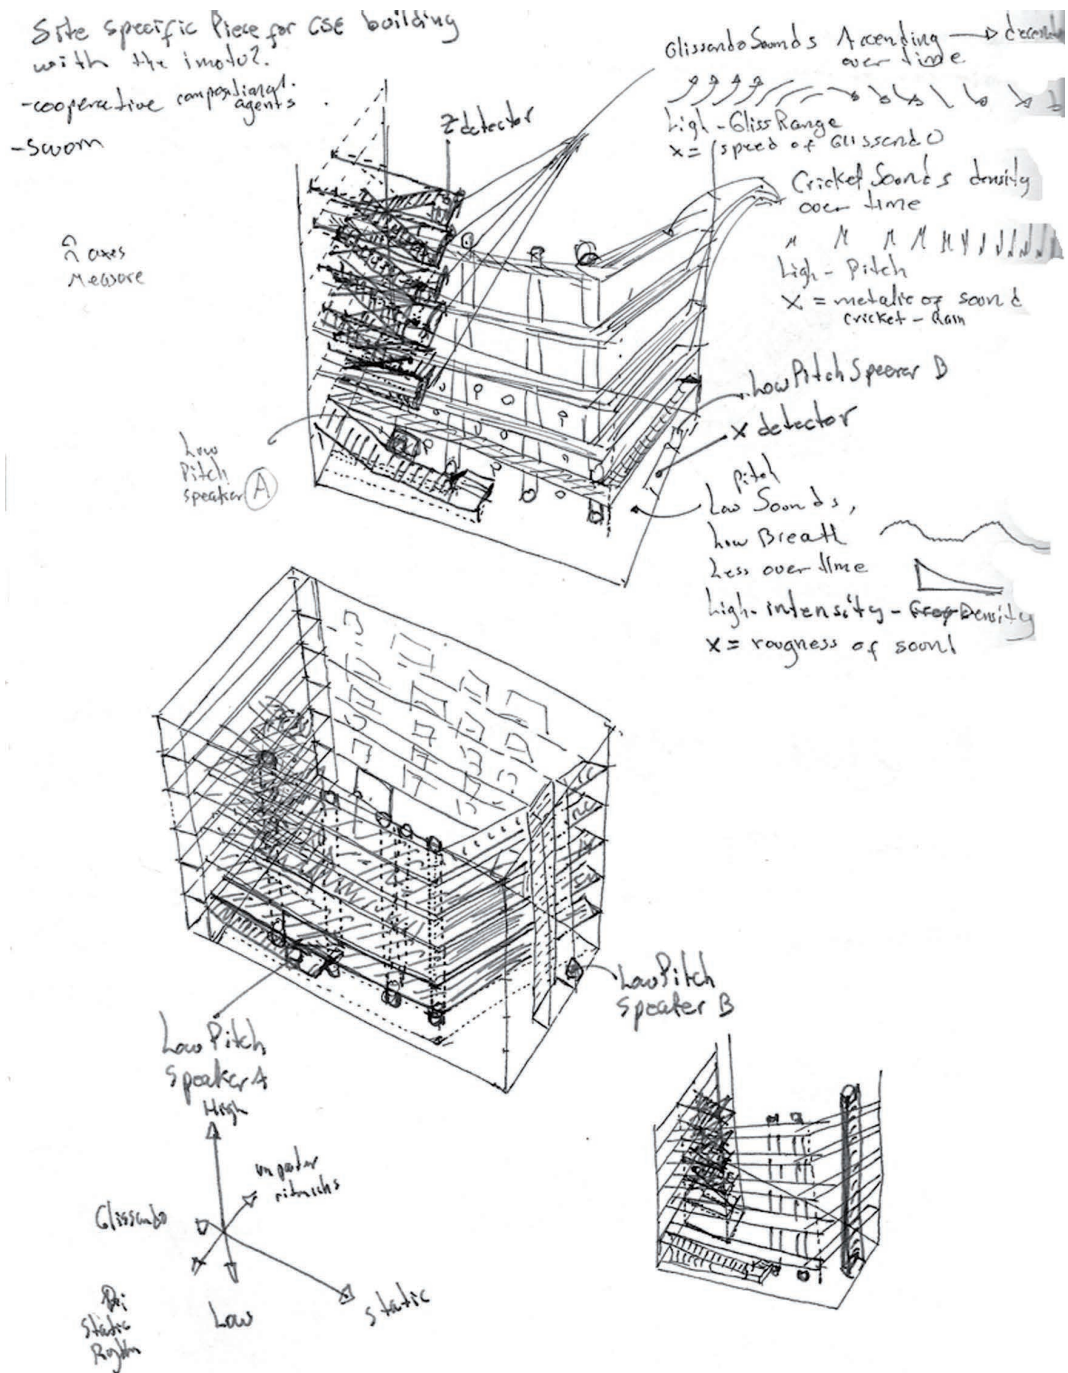 Site specific Piece for CSE building
with the imote2.
-cooperative compositional
agents
-Sworm
Z detector
Glissando Sounds Ascending
over time
High - Gliss Range
X = speed of Glissando
Cricket Sounds density
over time
High - Pitch
X = metalic of sound
Cricket - Rain
axes
Measure
Low Pitch Speerer B
X detector
Low
Pitch
speaker A
pitch
Low Sounds,
Low Breath
Less over time
High - intensity - Density
X = rougness of sound
Low Pitch
Speater B
Low Pitch
Speaker A
High
Glissando
static
Low
Static